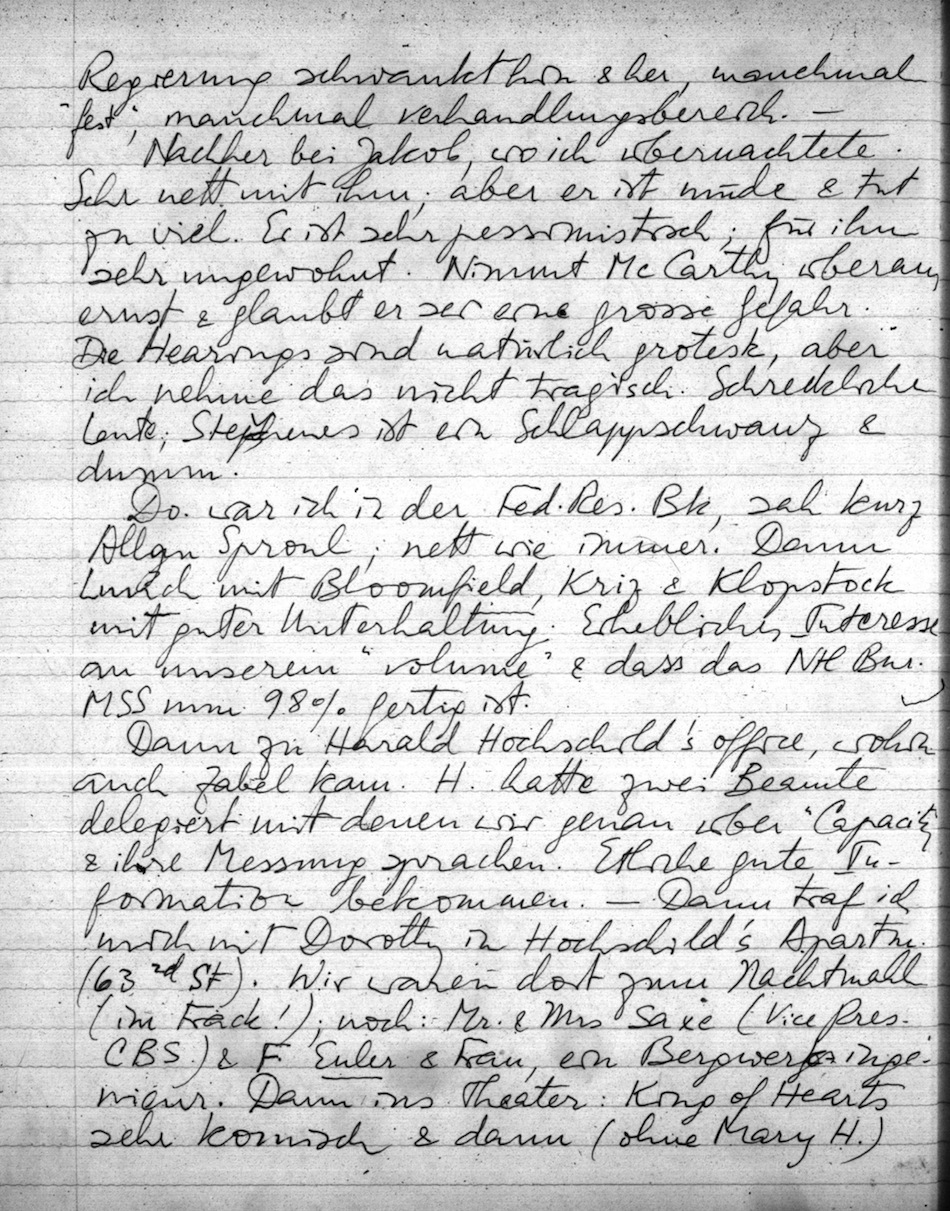 Regierung schwankt hin & her, manchmal
"fest", manchmal verhandlungsbereit. —
Nachher bei Jakob, wo ich übernachtete.
Sehr nett mit ihm; aber er ist müde & tut
zu viel. Er ist sehr pessimistisch; für ihn
sehr ungewohnt. Nimmt McCarthy überaus
ernst & glaubt er sei eine grosse Gefahr.
Die Hearings sind natürlich grotesk, aber
ich nehme das nicht tragisch. Schreckliche
Leute; Stevens ist ein Schlappschwanz &
dumm.
Do. war ich in der Fed. Res. Bk, sah kurz
Allan Sproul; nett wie immer. Dann
Lunch mit Bloomfield, Kriz & Klopstock
mit guter Unterhaltung. Erhebliches Interesse
an unserem "volume" & dass das Ntl Bur.
MSS nun 98% fertig ist.
Dann zu Harald Hochschild's office, wohin
auch Zabel kam. H. hatte zwei Beamte
delegiert mit denen wir genau über "Capacity"
& ihre Messung sprachen. Etliche gute In-
formation bekommen. — Dann traf ich
mich mit Dorothy in Hochschild's Apartm.
(63rd St). Wir waren dort zum Nachtmahl
(im Frack!); noch: Mr. & Mrs Saxe (Vice Pres.
CBS.) & F Euler & Frau, ein Bergwerksinge-
nieur. Dann ins Theater: King of Hearts
sehr komisch & dann (ohne Mary H.)